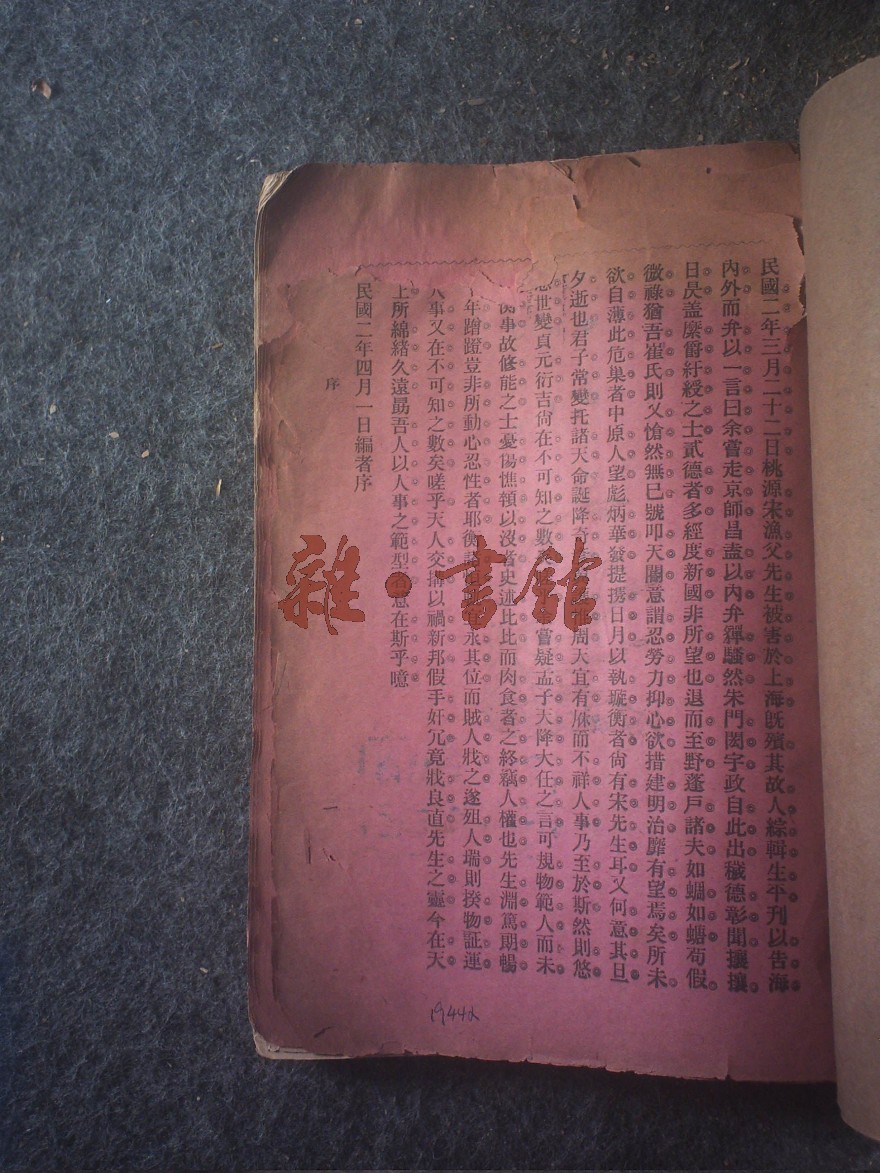 民國二年三月二十二日桃源宋漁父先生被害於上海旣殯其故人綜輯生平刊以告海
內外而弁以一言曰余嘗走京師昌盍以內弁貚騷然朱門閎宇政自此出穢德彰聞攘攘
日昃盖縻爵紆綬之士貳德者多經度新國非所望也退而至野蓬戶諸夫如蜩如螗苟假
微祿猶吾崔氏則又愴然無巳號叩天關意謂忍勞力抑心欲措建明治靡有望焉矣所未
欲自薄此危巢者中原人望彪炳華發提携日月以執璇衡者尙有宋先生耳又何意其旦
夕逝也君子常變托諸天命誕降 周天宜有 而不祥人事乃至於斯然則悠
世變貞元衍吉尙在不可知之數 嘗疑孟子天降大任之言可規物範人而未
衡事故修能之士憂傷憔顇以沒者史述比比而肉食者之終竊人權也先生淵篤期暢
年蹭蹬豈非所動心忍性者耶衡 永其位而賊人戕之遂殂人瑞則揆物証運
人事又在不可知之數矣嗟乎天人交搆以禍新邦假手奸宄竟戕良直先生之靈今在天
上所綿緒久遠勗吾人以人事之範型者意在斯乎噫
民國二年四月一日編者序
序
一
19442
雜·書館